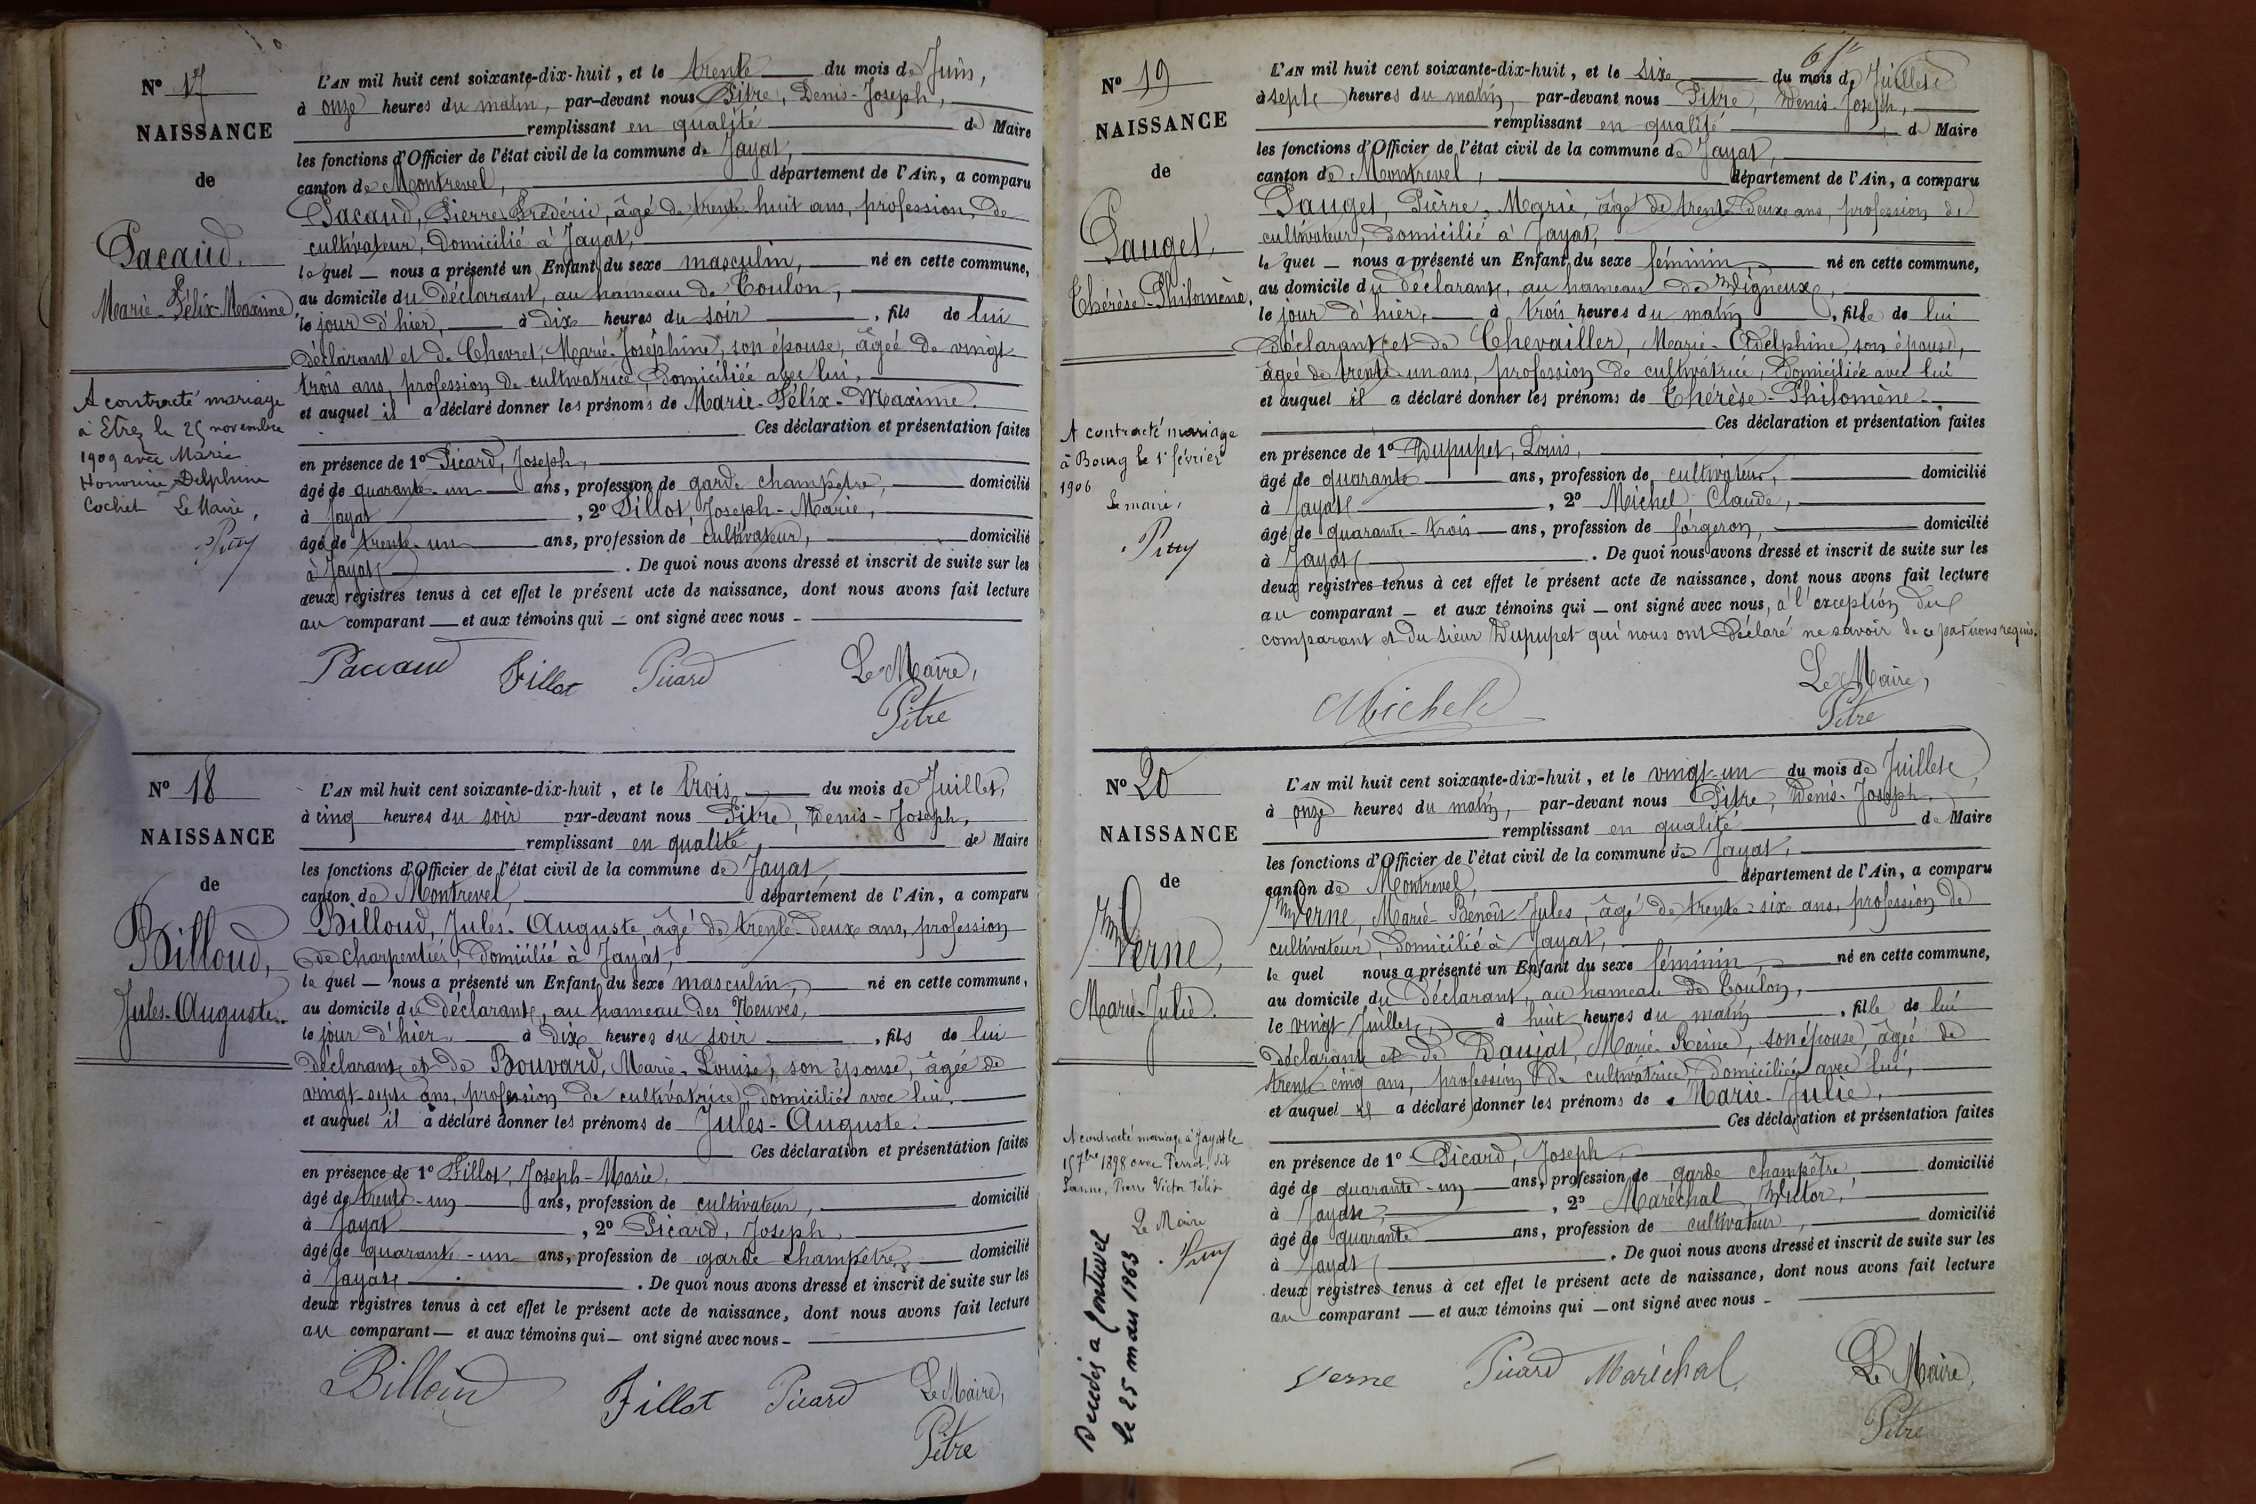 N° 17
NAISSANCE
de
Pacaud,
Marie-Félix-Maxime,
A contracté mariage
à Etrez le 25 novembre
1909 avec Marie
Honorine Delphine
Cochet Le Maire,
Pitre
L'AN mil huit cent soixante-dix-huit, et le trente du mois de Juin,
à onze heures du matin, par-devant nous Pitre, Denis-Joseph,
remplissant en qualité de Maire
les fonctions d'Officier de l'état civil de la commune de Jayat,
canton de Montrevel, département de l'Ain, a comparu
Pacaud, Pierre-Frédéric, âgé de trente-huit ans, profession de
cultivateur, domicilié à Jayat,
le quel — nous a présenté un Enfant du sexe masculin, né en cette commune,
au domicile du déclarant, au hameau de Coulon,
le jour d'hier, à dix heures du soir, fils de lui
déclarant et de Chevret, Marie-Joséphine, son épouse, âgée de vingt-
trois ans, profession de cultivatrice, domiciliée avec lui,
et auquel il a déclaré donner les prénoms de Marie-Félix-Maxime.
Ces déclaration et présentation faites
en présence de 1° Picard, Joseph,
âgé de quarante-un ans, profession de garde champêtre, domicilié
à Jayat, 2° Fillot, Joseph-Marie,
âgé de trente-un ans, profession de cultivateur, domicilié
à Jayat. De quoi nous avons dressé et inscrit de suite sur les
deux registres tenus à cet effet le présent acte de naissance, dont nous avons fait lecture
au comparant — et aux témoins qui — ont signé avec nous -
Pacaud Fillot Picard Le Maire,
Pitre
N° 18
NAISSANCE
de
Billoud,
Jules-Auguste.
L'AN mil huit cent soixante-dix-huit, et le trois du mois de Juillet,
à cinq heures du soir par-devant nous Pitre, Denis-Joseph,
remplissant en qualité, de Maire
les fonctions d'Officier de l'état civil de la commune de Jayat,
canton de Montrevel, département de l'Ain, a comparu
Billoud, Jules-Auguste, âgé de trente-deux ans, profession
de charpentier, domicilié à Jayat,
le quel — nous a présenté un Enfant du sexe masculin, né en cette commune,
au domicile du déclarant, au hameau des Neuves,
le jour d'hier à dix heures du soir, fils de lui
déclarant et de Bouvard, Marie-Louise, son épouse, âgée de
vingt-sept ans, profession de cultivatrice, domiciliée avec lui.
et auquel il a déclaré donner les prénoms de Jules-Auguste.
Ces déclaration et présentation faites
en présence de 1° Fillot, Joseph-Marie,
âgé de trente-un ans, profession de cultivateur, domicilié
à Jayat, 2° Picard, Joseph,
âgé de quarante-un ans, profession de garde champêtre, domicilié
à Jayat. De quoi nous avons dressé et inscrit de suite sur les
deux registres tenus à cet effet le présent acte de naissance, dont nous avons fait lecture
au comparant — et aux témoins qui — ont signé avec nous -
Billoud Fillot Picard Le Maire,
Pitre
N° 19
NAISSANCE
de
Pauget,
Thérèse-Philomène,
A contracté mariage
à Bourg le 1er février
1906
Le maire,
Pitre
L'AN mil huit cent soixante-dix-huit, et le six du mois de Juillet
à sept heures du matin, par-devant nous Pitre, Denis-Joseph,
remplissant en qualité, de Maire
les fonctions d'Officier de l'état civil de la commune de Jayat,
canton de Montrevel, département de l'Ain, a comparu
Pauget, Pierre-Marie, âgé de trente-deux ans, profession de
cultivateur, domicilié à Jayat,
le quel — nous a présenté un Enfant du sexe féminin né en cette commune,
au domicile du déclarant, au hameau de Vigneux,
le jour d'hier, à trois heures du matin, fille de lui
déclarant et de Chevailler, Marie-Adelphine, son épouse,
âgée de trente-un ans, profession de cultivatrice, domiciliée avec lui
et auquel il a déclaré donner les prénoms de Thérèse-Philomène.
Ces déclaration et présentation faites
en présence de 1° Dupupet, Louis,
âgé de quarante ans, profession de cultivateur, domicilié
à Jayat, 2° Michel Claude,
âgé de quarante-trois ans, profession de forgeron, domicilié
à Jayat. De quoi nous avons dressé et inscrit de suite sur les
deux registres tenus à cet effet le présent acte de naissance, dont nous avons fait lecture
au comparant — et aux témoins qui — ont signé avec nous, à l'exception du
comparant et du sieur Dupupet qui nous ont déclaré ne savoir de ce par nous requis.
Michel Le Maire,
Pitre
N° 20
NAISSANCE
de
Verne,
Marie-Julie.
A contracté mariage à Jayat le
15 7bre 1898 avec Perrot, dit
Pierre Victor Félix
Le Maire
Pitre
Décédée à Montrevel
le 25 mars 1963
L'AN mil huit cent soixante-dix-huit, et le vingt-un du mois de Juillet,
à onze heures du matin, par-devant nous Pitre, Denis-Joseph,
remplissant en qualité de Maire
les fonctions d'Officier de l'état civil de la commune de Jayat,
canton de Montrevel, département de l'Ain, a comparu
Verne, Marie-Benoît-Jules, âgé de trente-six ans, profession de
cultivateur, domicilié à Jayat,
le quel nous a présenté un Enfant du sexe féminin, né en cette commune,
au domicile du déclarant, au hameau de Coulon,
le vingt Juillet, à huit heures du matin, fille de lui
déclarant et de Daujat, Marie-Reine, son épouse, âgée de
trente-cinq ans, profession de cultivatrice, domiciliée avec lui,
et auquel il a déclaré donner les prénoms de Marie-Julie,
Ces déclaration et présentation faites
en présence de 1° Picard, Joseph,
âgé de quarante-un ans, profession de garde champêtre domicilié
à Jayat, 2° Maréchal, Victor,
âgé de quarante ans, profession de cultivateur, domicilié
à Jayat. De quoi nous avons dressé et inscrit de suite sur les
deux registres tenus à cet effet le présent acte de naissance, dont nous avons fait lecture
au comparant — et aux témoins qui — ont signé avec nous -
Verne Picard Maréchal Le Maire,
Pitre